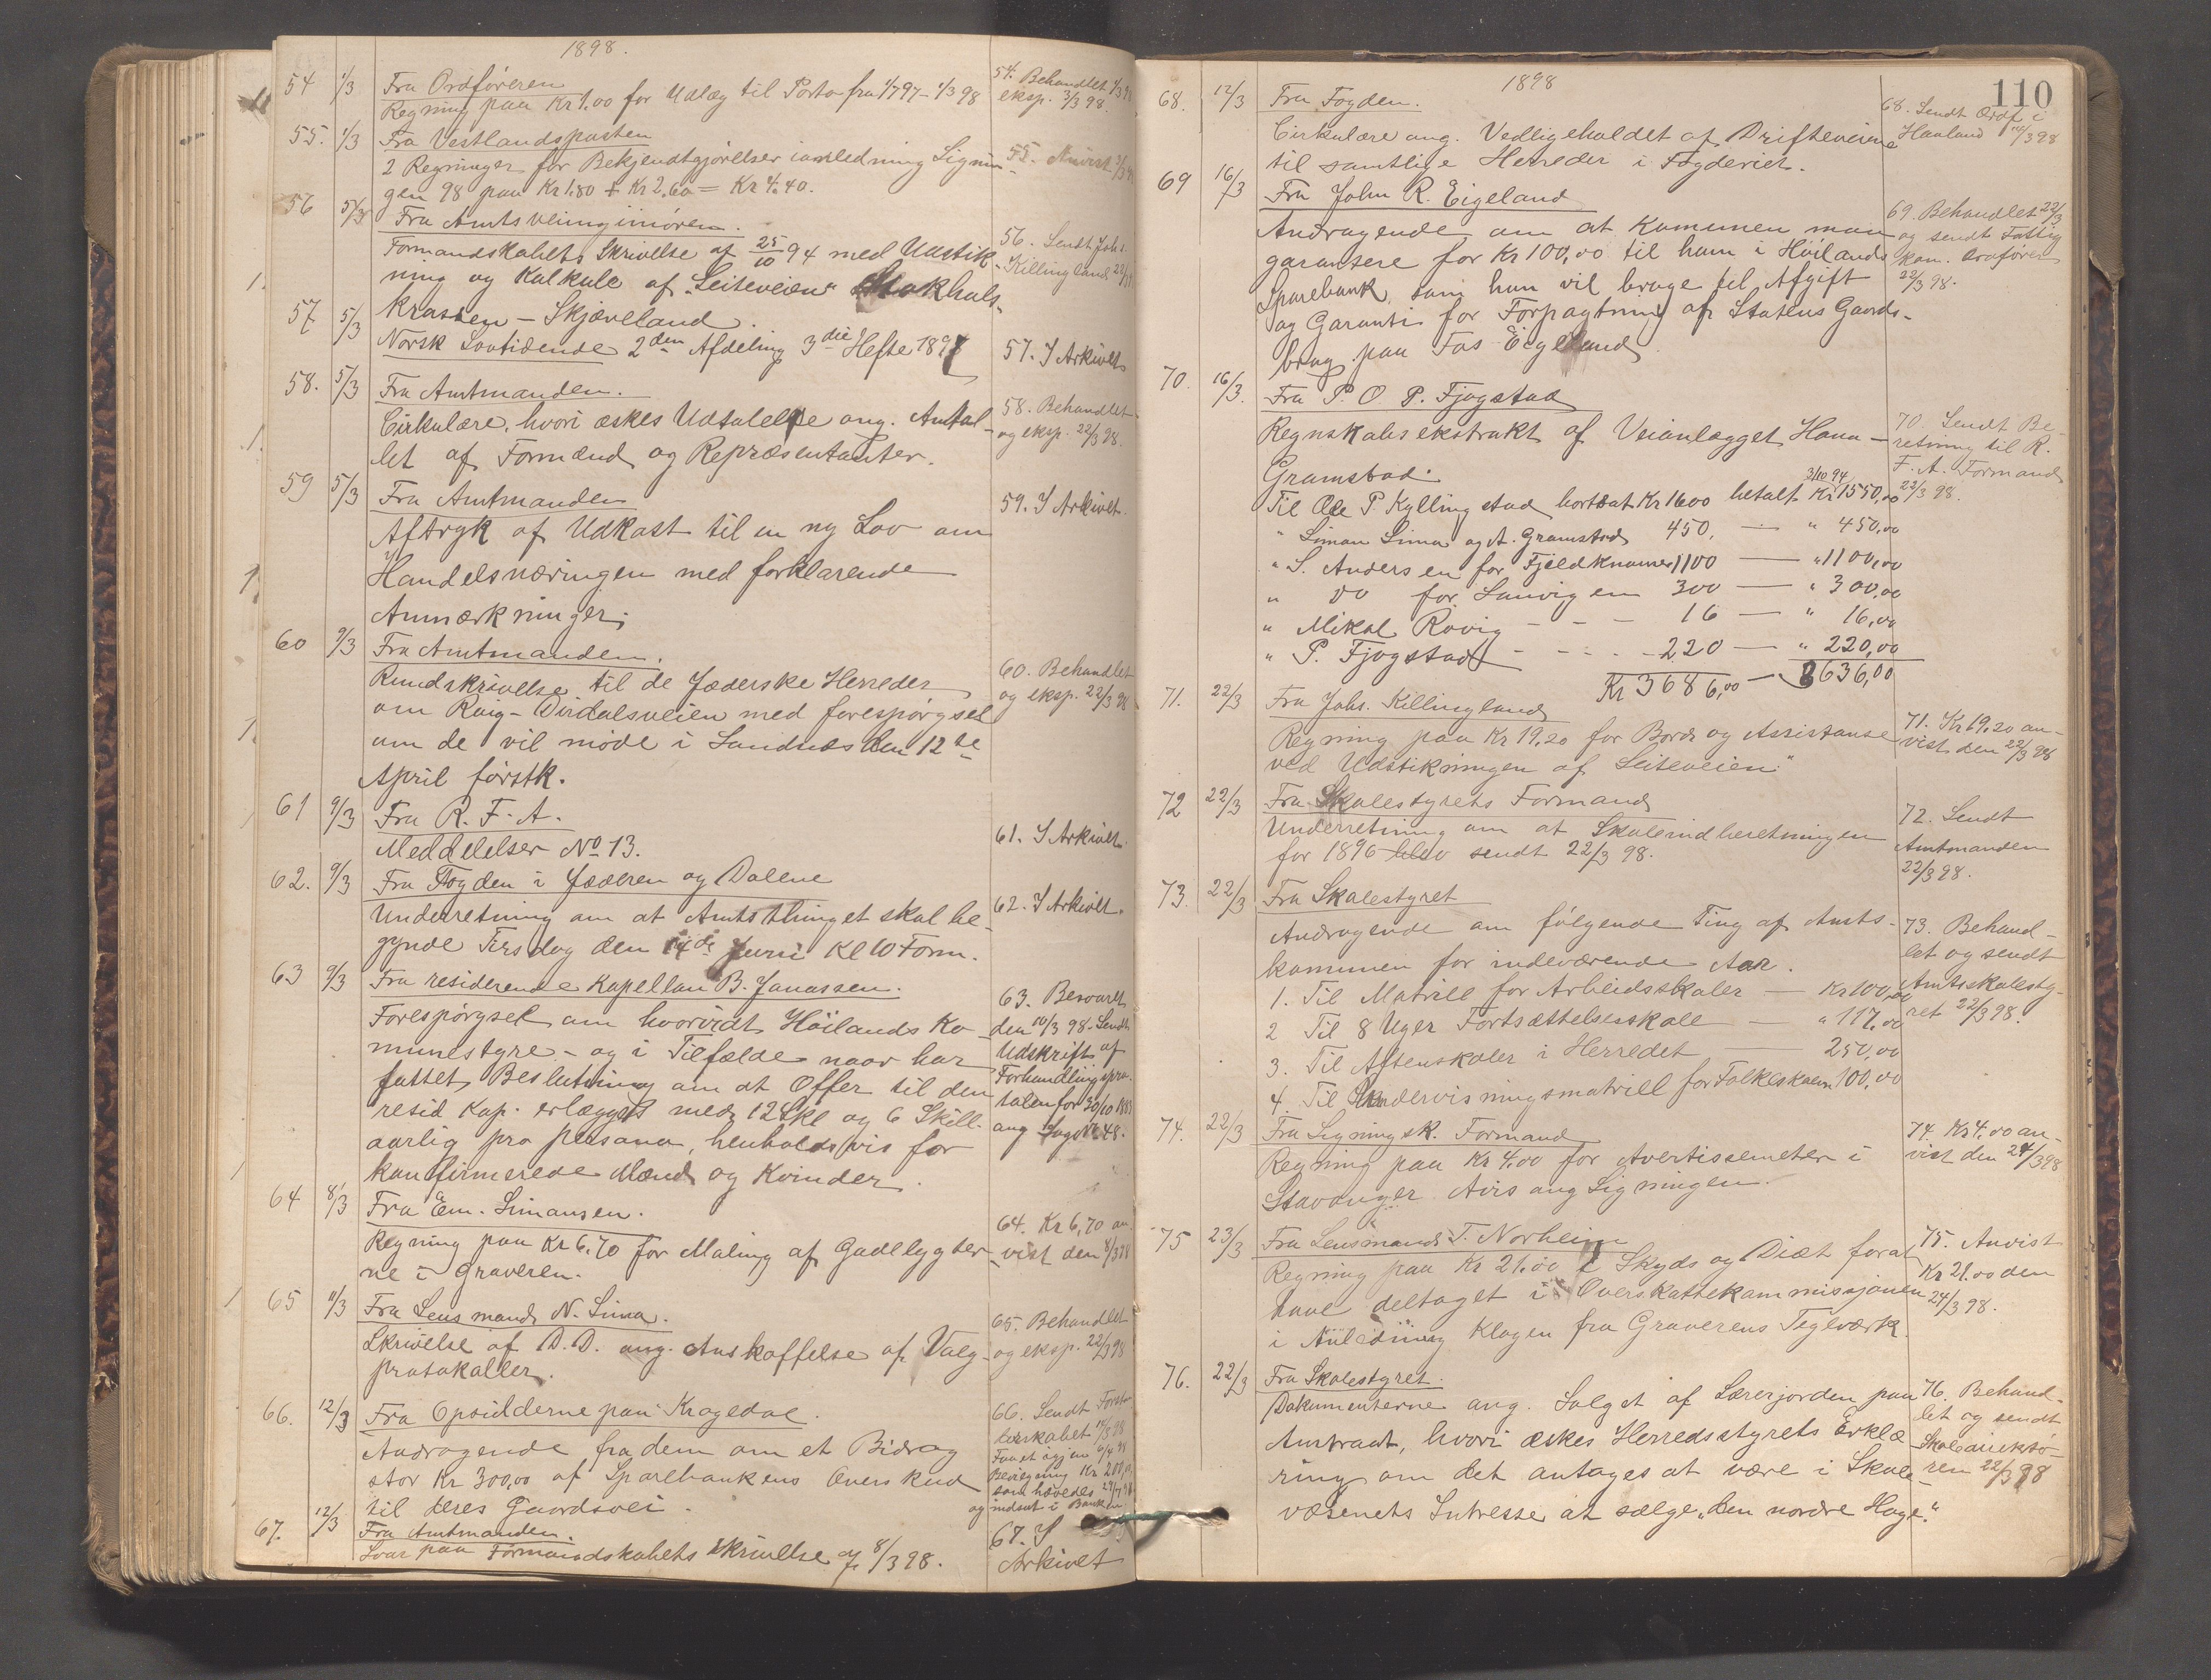 1898.
54 1/3 Fra Ordföreren
Regning paa Kr 1.00 for Udlæg til Porto fra 1/7 97 – 1/3 98
54. Behandlet
eksp. 3/3 98.
55. 1/3 Fra Vestlandsposten
2 Regninger for Bekjendtgjörelser i anledning Lignin-
gen 98 paa Kr 1.80 + Kr 2.60 = Kr 4.40.
55. Anvist
56 5/3 Fra Amtsveiingeniören.
Formandskabets Skrivelse af 25/10 94 med Udstik-
ning og Kalkule af „Leiteveien" Stokhols-
Krossen – Skjæveland.
56. Sendt Johs.
Killingland
57 5/3 Norsk Lovtidende 2den Afdeling 3die Hefte 1897
57. I Arkivet
58. 5/3 Fra Amtmanden.
Cirkulære, hvori æskes Udtalelse ang. Antal-
let af Formænd og Repræsentanter.
58. Behandlet
og eksp. 22/3 98.
59 5/3 Fra Amtmanden
Aftryk af Udkast til en ny Lov om
Handelsnæringen med forklarende
Anmærkninger.
59. I Arkivet.
60 9/3 Fra Amtmanden.
Rundskrivelse til de Jæderske Herreder
om Røig – Dirdalsveien med forespörgsel
om de vil möde i Sandnæs den 12te
April förstk.
60. Behandlet
og eksp. 22/3 98
61 9/3 Fra R. F. A.
Meddelelser No 13.
61. I Arkivet.
62. 9/3 Fra Fogden i Jæderen og Dalene
Underretning om at Amtsthinget skal be-
gynde Tirsdag den 14de Juni Kl 10 Form.
62. I Arkivet.
63 9/3 Fra residerende Kapellan B. Jonassen.
Forespörgsel om hvorvidt Höilands Ko-
munestyre – og i Tilfælde naar har
fattet Beslutning om at Offer til den
resid Kap. erlægges med 12 Skl og 6 Skill.
aarlig pro persona, henholdsvis for
konfirmerede Mænd og Kvinder.
63. Besvaret
den 10/3 98. Sendt
Udskrift af
Forhandlingspro-
tokolen for 30/10
ang Sag No 48.
64 8/3 Fra Em. Simonsen.
Regning paa Kr 6,70 for Maling af Gadelygter-
ne i Graveren.
64. Kr 6,70 an-
vist den
65 11/3 Fra Lensmand N. Sima.
Skrivelse af D.D. ang. Anskaffelse af Valg-
protokoller.
65. Behandlet
og eksp. 22/3 98
66. 12/3 Fra Opsidderne paa Kragedal.
Andragende fra dem om et Bidrag
stor Kr 300,00 af Sparebankens Overskud
til deres Gaardsvei.
66. Sendt Forstan-
derskabet
Bevilgning Kr 200,00
som hævedes
og indsat i Banken
67. 12/3 Fra Amtmanden.
Svar paa Formandskabets Skrivelse af 8/3 98.
67. I
Arkivet
110
1898
68. 12/3 Fra Fogden.
Cirkulære ang. Vedligeholdet af Drifteveiene
til samtlige Herreder i Fogderiet.
68. Sendt Ordf i
Haaland 14/3 98
69 16/3 Fra John R. Eigeland
Andragende om at Komunen maa
garantere for Kr 100,00 til ham i Höilands
Sparebank, som han vil bruge til Afgift
og Garanti for Forpagtning af Statens Gaards-
brug paa Fos Eigeland
69. Behandlet 22/3
og sendt Fattig
kom. Ordförer
22/3 98.
70. 16/3. Fra P. O. P. Fjogstad
Regnskabsekstrakt af Veianlægget Hana –
Gramstad.
3/10 94
Til Ole P Kyllingstad bortsat Kr 1600 betalt Kr 1550,00
" Simon Sima og A. Gramstad 450, — " 450,00
" S. Andersen for Fjeldknauser 1100 — " 1100,00
" Do for Sanvigen 300 — " 300,00
" Mikal Rovig - - - 16 — " 16,00
" P. Fjogstad - - - - 220 — " 220,00
Kr 3686,00 — 3636,00
70. Sendt Be-
retning til R.
F. A. Formand
22/3 98.
71. 22/3 Fra Johs. Killingland
Regning paa Kr 19,20 for Bord og Assistanse
ved Udstikningen af Leiteveien"
71. Kr 19.20 an-
vist den 22/3 98
72 22/3 Fra Skolestyrets Formand
Underretning om at Skoleindberetningen
for 1896 blev sendt 22/3 98.
72. Sendt
Amtmanden
22/3 98.
73. 22/3 Fra Skolestyret
Andragende om fölgende Ting af Amts-
komunen for indeværende Aar.
1. Til Matriel for Arbeidsskoler — Kr 100,00
2 Til 8 Uger Fortsættelsesskole — " 117,00
3. Til Aftenskoler i Herredet — 250,00
4. Til Undervisningsmatriell for Folkeskolen 100,00
73. Behand-
let og sendt
Amtsskolesty-
ret 22/3 98.
74. 22/3 Fra Ligningsk. Formand
Regning paa Kr 4.00 for Avertissementer i
Stavanger Avis ang Ligningen.
74. Kr 4.00 an-
vist den 24/3 98
75 23/3 Fra Lensmand T. Norheim
Regning paa Kr 21.00 i Skyds og Diæt for at
have deltaget i Overskattekommissjonen
i Anledning Klagen fra Graverens Teglværk.
75. Anvist
Kr 21.00 den
24/3 98.
76. 22/3 Fra Skolestyret.
Dokumenterne ang. Salget af Lærerjorden paa
Austraat, hvori æskes Herredsstyrets Erklæ-
ring om det antages at være i Skole-
væsenets Intresse at sælge „den nordre Hage."
76. Behand-
let og sendt
Skoledirektö-
ren 22/3 98